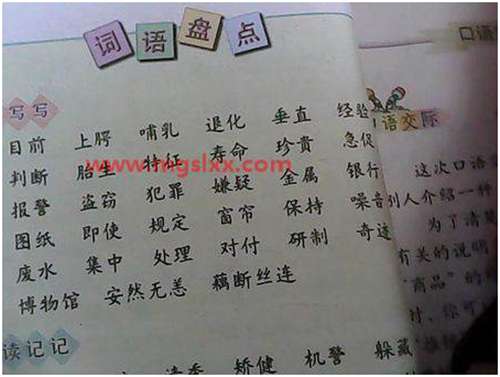 词语盘点
口语
写写
目前 上腭 哺乳 退化 垂直 经验
判断 胎生 特征 寿命 珍贵 急促
报警 盗窃 犯罪 嫌疑 金属 银行
图纸 即使 规定 窗帘 保持 噪音
废水 集中 处理 对付 研制 奇迹
博物馆 安然无恙 藕断丝连
读记记
矫健 机警 躲藏
www.mgslxx.com
语交际
这次口语
别人介绍一种
为了清楚
有关的说明
“商品”的
时，你可